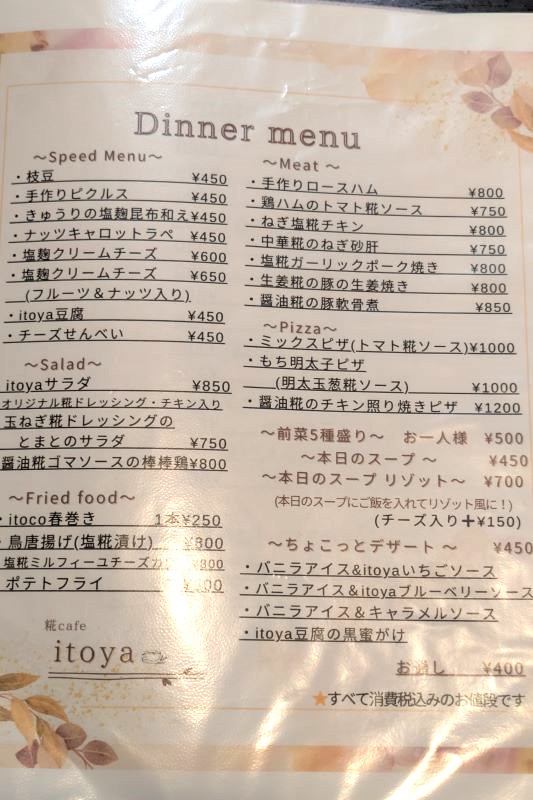 Dinner menu
～Speed Menu～
・枝豆 ¥450
・手作りピクルス ¥450
・きゅうりの塩麹昆布和え¥450
・ナッツキャロットラペ ¥450
・塩麹クリームチーズ ¥600
・塩麹クリームチーズ ¥650
(フルーツ＆ナッツ入り)
・itoya豆腐 ¥450
・チーズせんべい ¥450
～Salad～
itoyaサラダ ¥850
オリジナル糀ドレッシング・チキン入り
玉ねぎ糀ドレッシングの
とまとのサラダ ¥750
醤油糀ゴマソースの棒棒鶏¥800
～Fried food～
・itoco春巻き 1本¥250
・鳥唐揚げ(塩糀漬け) ¥800
塩糀ミルフィーユチーズカツ ¥800
ポテトフライ
糀cafe
itoya
～Meat ～
・手作りロースハム ¥800
・鶏ハムのトマト糀ソース ¥750
・ねぎ塩糀チキン ¥800
・中華糀のねぎ砂肝 ¥750
・塩糀ガーリックポーク焼き ¥800
・生姜糀の豚の生姜焼き ¥800
・醤油糀の豚軟骨煮 ¥850
～Pizza～
・ミックスピザ(トマト糀ソース)¥1000
・もち明太子ピザ
(明太玉葱糀ソース) ¥1000
・醤油糀のチキン照り焼きピザ ¥1200
～前菜5種盛り～ お一人様 ¥500
～本日のスープ ～ ¥450
～本日のスープ リゾット～ ¥700
(本日のスープにご飯を入れてリゾット風に！)
(チーズ入り＋¥150)
～ちょこっとデザート ～ ¥450
・バニラアイス&itoyaいちごソース
・バニラアイス＆itoyaブルーベリーソース
・バニラアイス＆キャラメルソース
・itoya豆腐の黒蜜がけ
お通し ¥400
★すべて消費税込みのお値段です